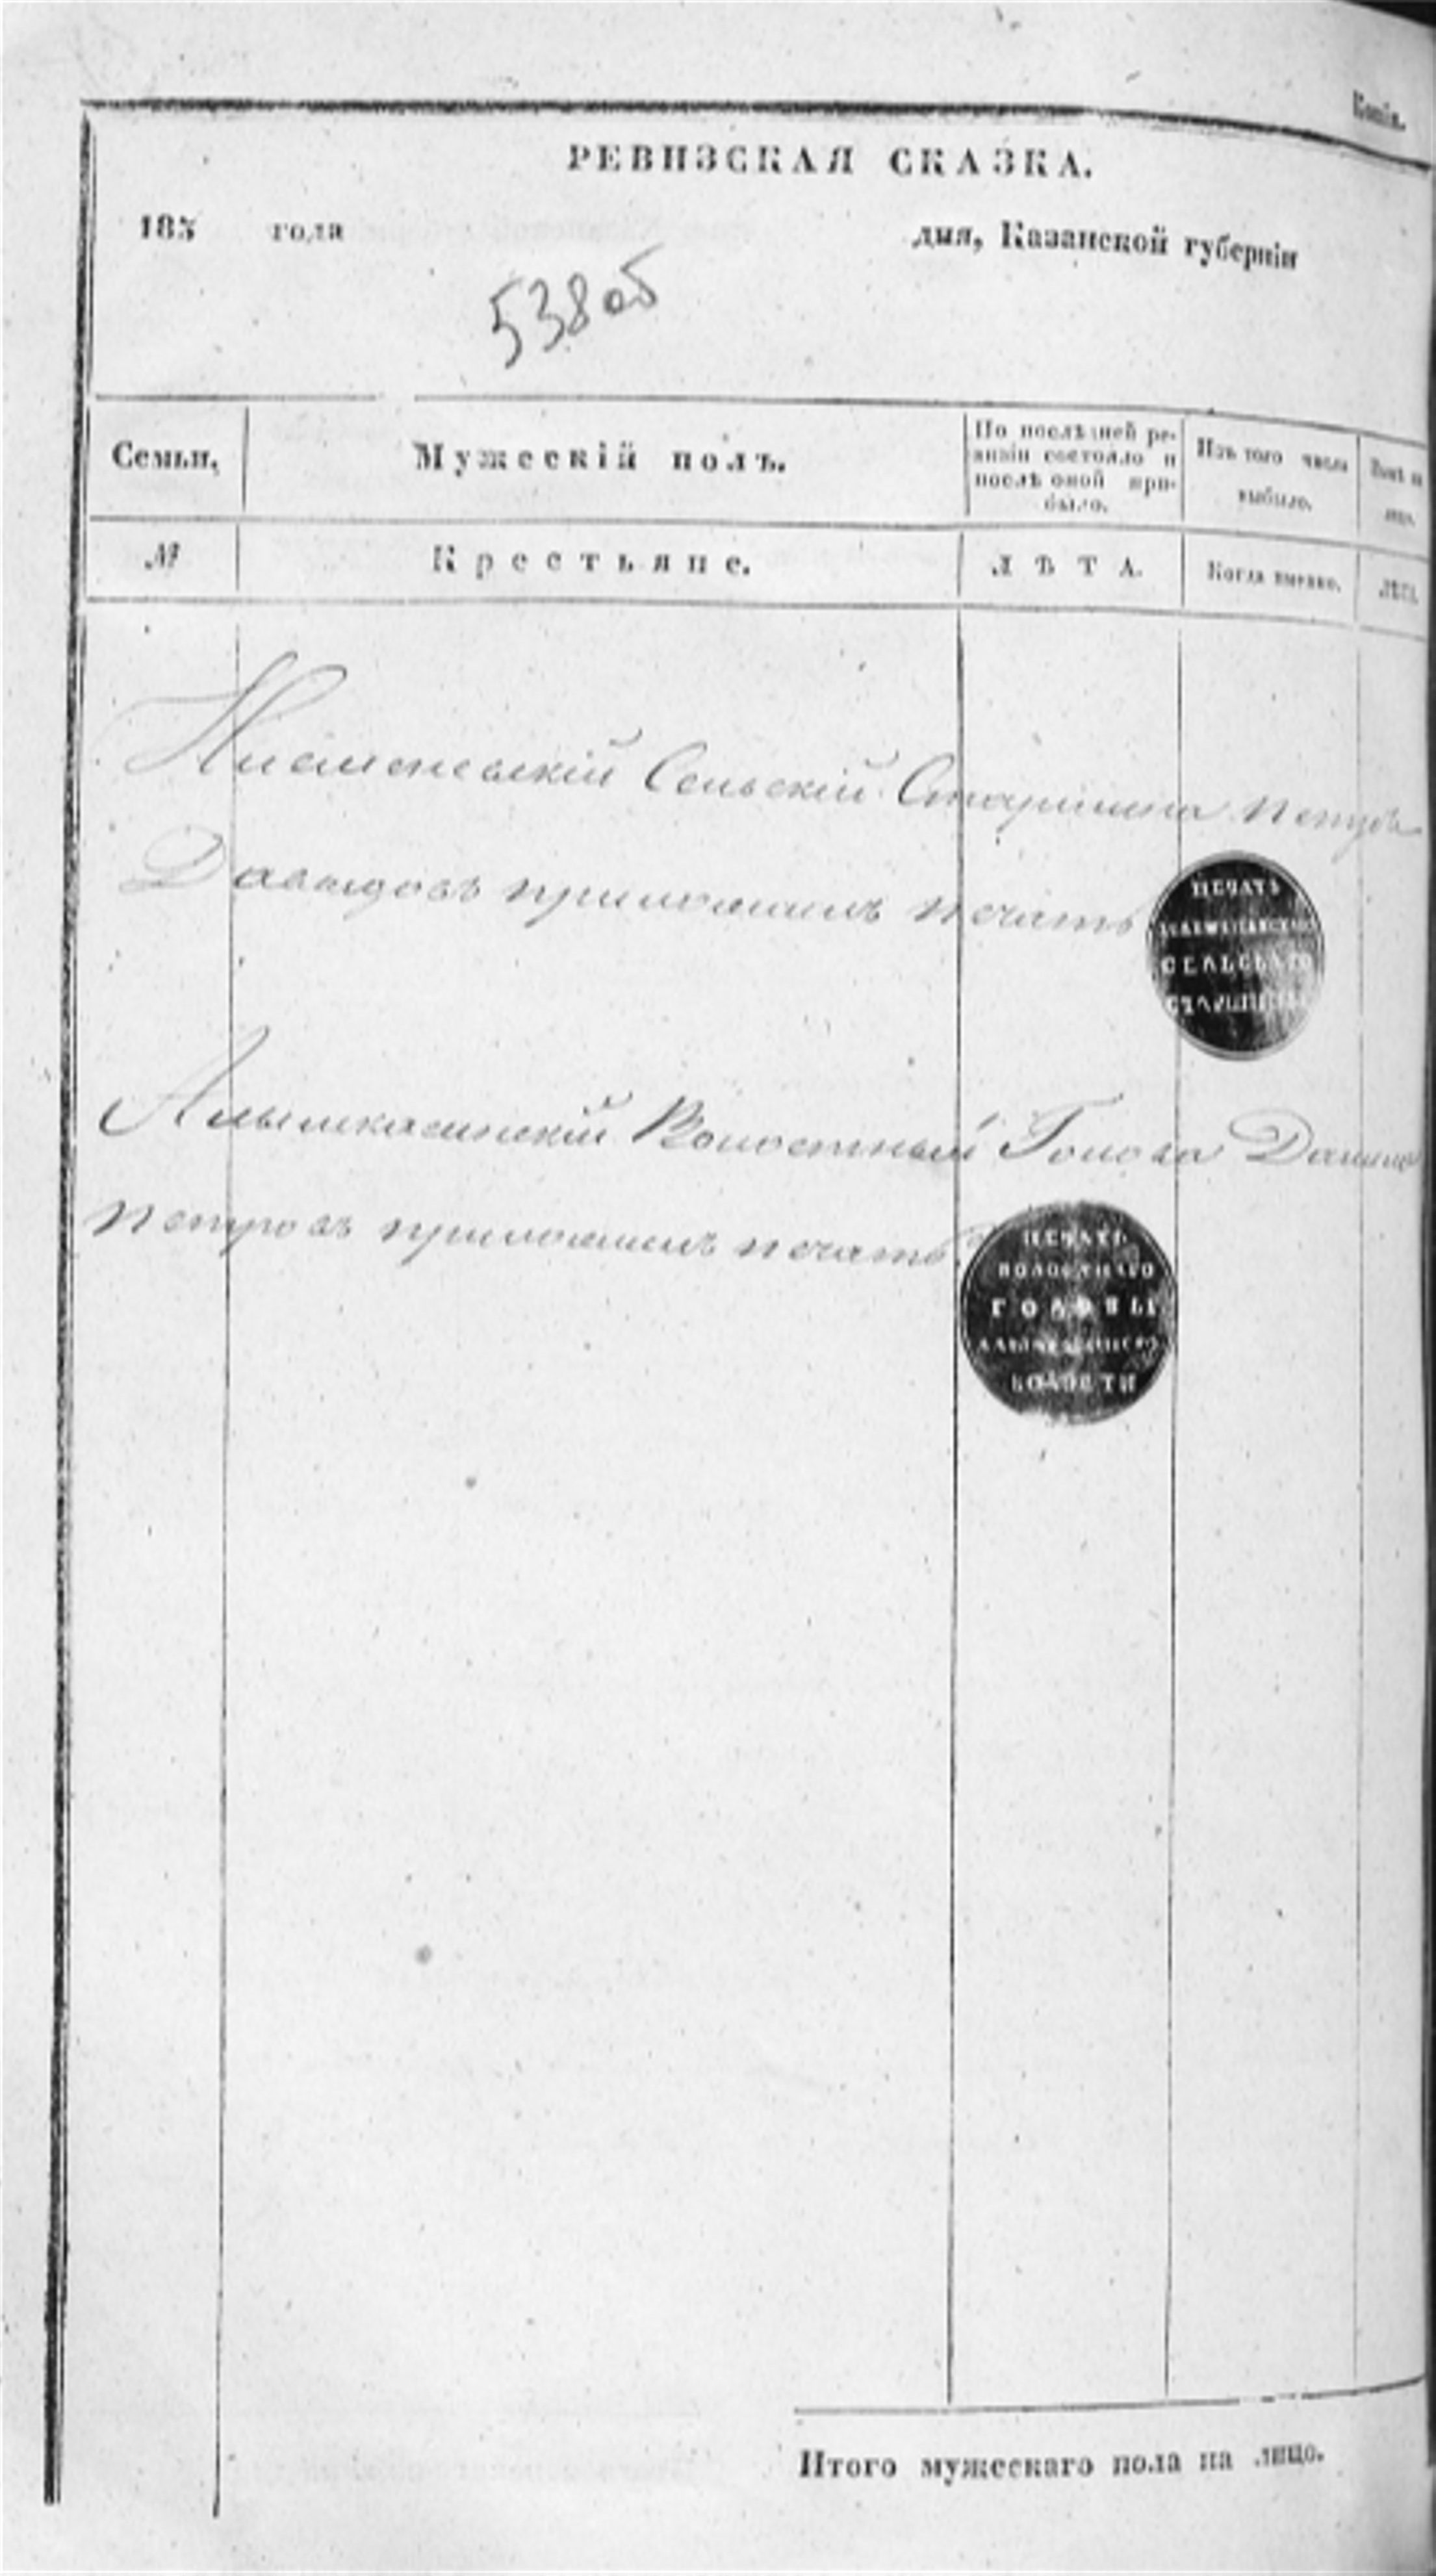 Копія.
РЕВИЗСКАЯ СКАЗКА.
185 года дня, Казанской губерніи
538об
Семьи,
Мужескій полъ.
По послѣдней ре-
визіи состояло и
послѣ оной при-
было.
Изъ того числа
выбыло.
№
Крестьяне.
ЛѢТА.
Когда именно.
ЛѢТА.
Сельскій Старшина Петръ
Давыдовъ приложилъ печать
ПЕЧАТЬ
СЕЛЬСКАГО
СТАРШИНЫ
Алымкасинскій Волостный Голова Данило
Петровъ приложилъ печать.
ПЕЧАТЬ
ВОЛОСТНАГО
ГОЛОВЫ
ВОЛОСТИ
Итого мужескаго пола на лицо.